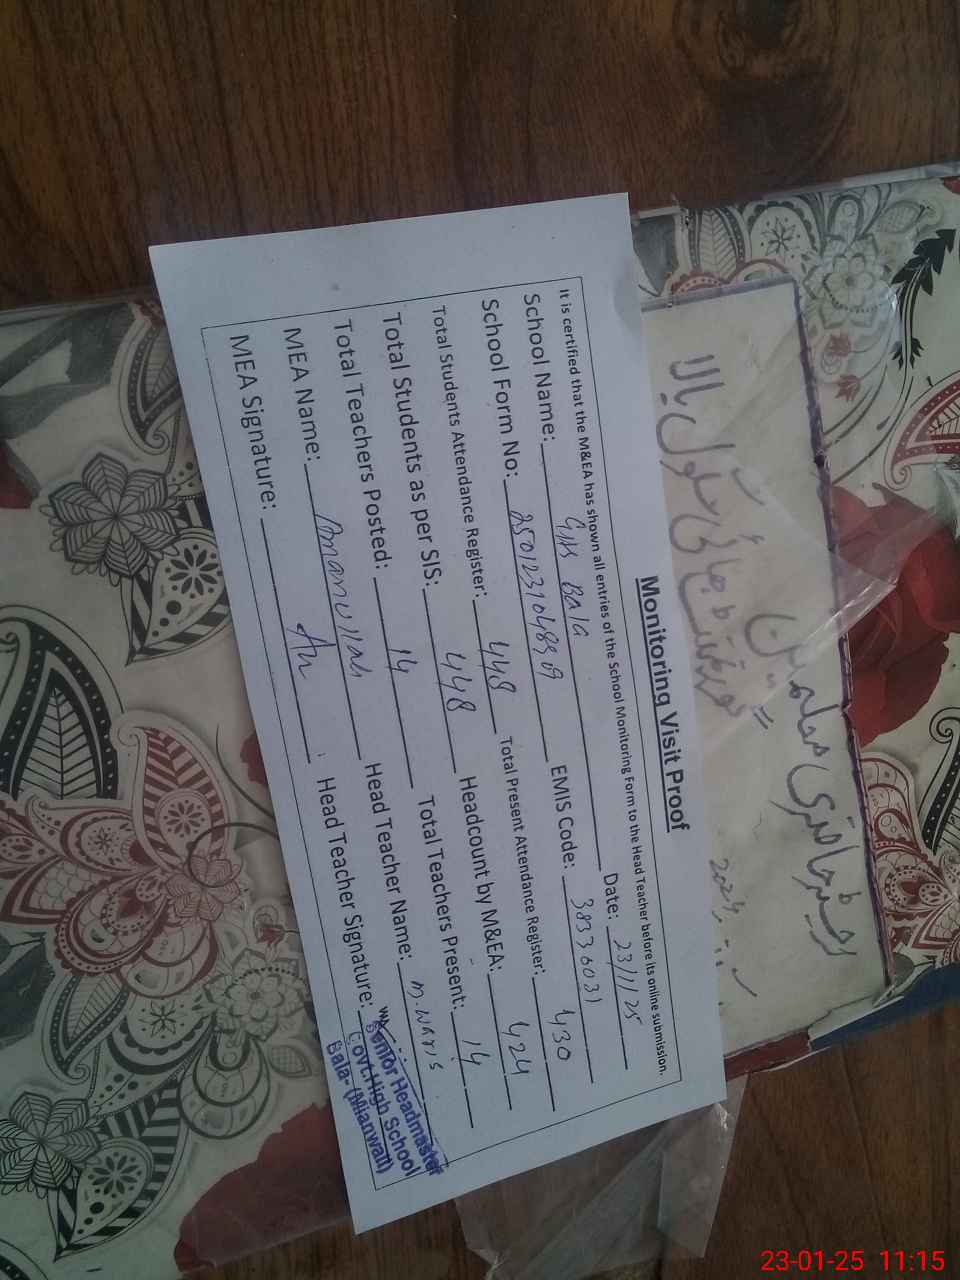 Monitoring Visit Proof
It is certified that the M&EA has shown all entries of the School Monitoring Form to the Head Teacher before its online submission.
School Name: GHS Bala Date: 23/1/25
School Form No: 2501231048909 EMIS Code: 38330031
Total Students Attendance Register: 448 Total Present Attendance Register: 430
Total Students as per SIS: 448 Headcount by M&EA: 424
Total Teachers Posted: 14 Total Teachers Present: 14
MEA Name: Amanullah Head Teacher Name: M. Waris
MEA Signature: Head Teacher Signature:
Senior Headmaster
Govt.High School
Bala- (Mianwali)
رجسٹر حاضری معلمین
گورنمنٹ ہائی سکول بالا
23-01-25 11:15